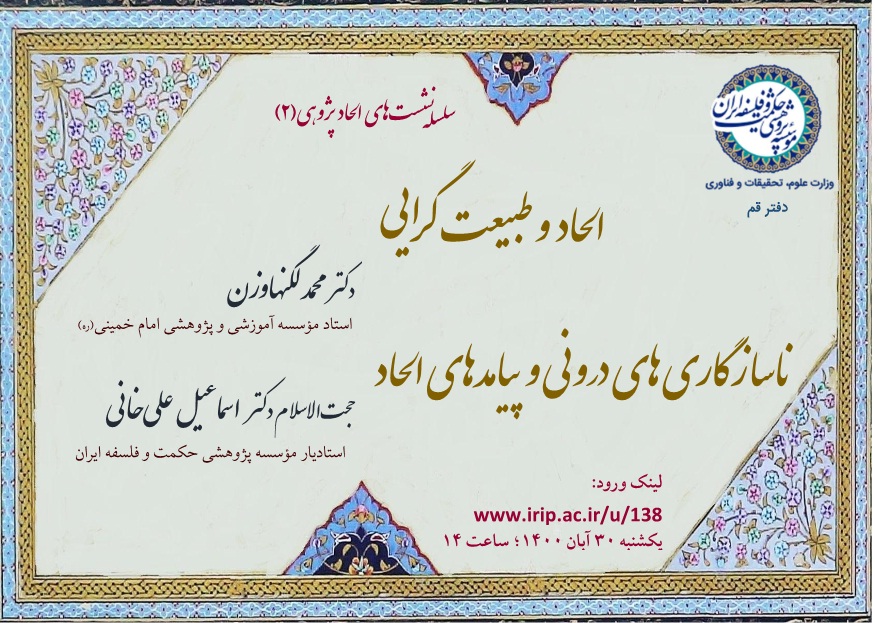 مؤسسه پژوهشی حکمت و فلسفه ایران
وزارت علوم، تحقیقات و فناوری
دفتر قم
سلسله نشست‌های الحاد پژوهی (۲)
الحاد و طبیعت گرایی
دکتر محمد لگنهاوزن
استاد مؤسسه آموزشی و پژوهشی امام خمینی(ره)
ناسازگاری های درونی و پیامدهای الحاد
حجت‌الاسلام دکتر اسماعیل علی‌خانی
استادیار مؤسسه پژوهشی حکمت و فلسفه ایران
لینک ورود:
www.irip.ac.ir/u/138
یکشنبه ۳۰ آبان ۱۴۰۰؛ ساعت ۱۴